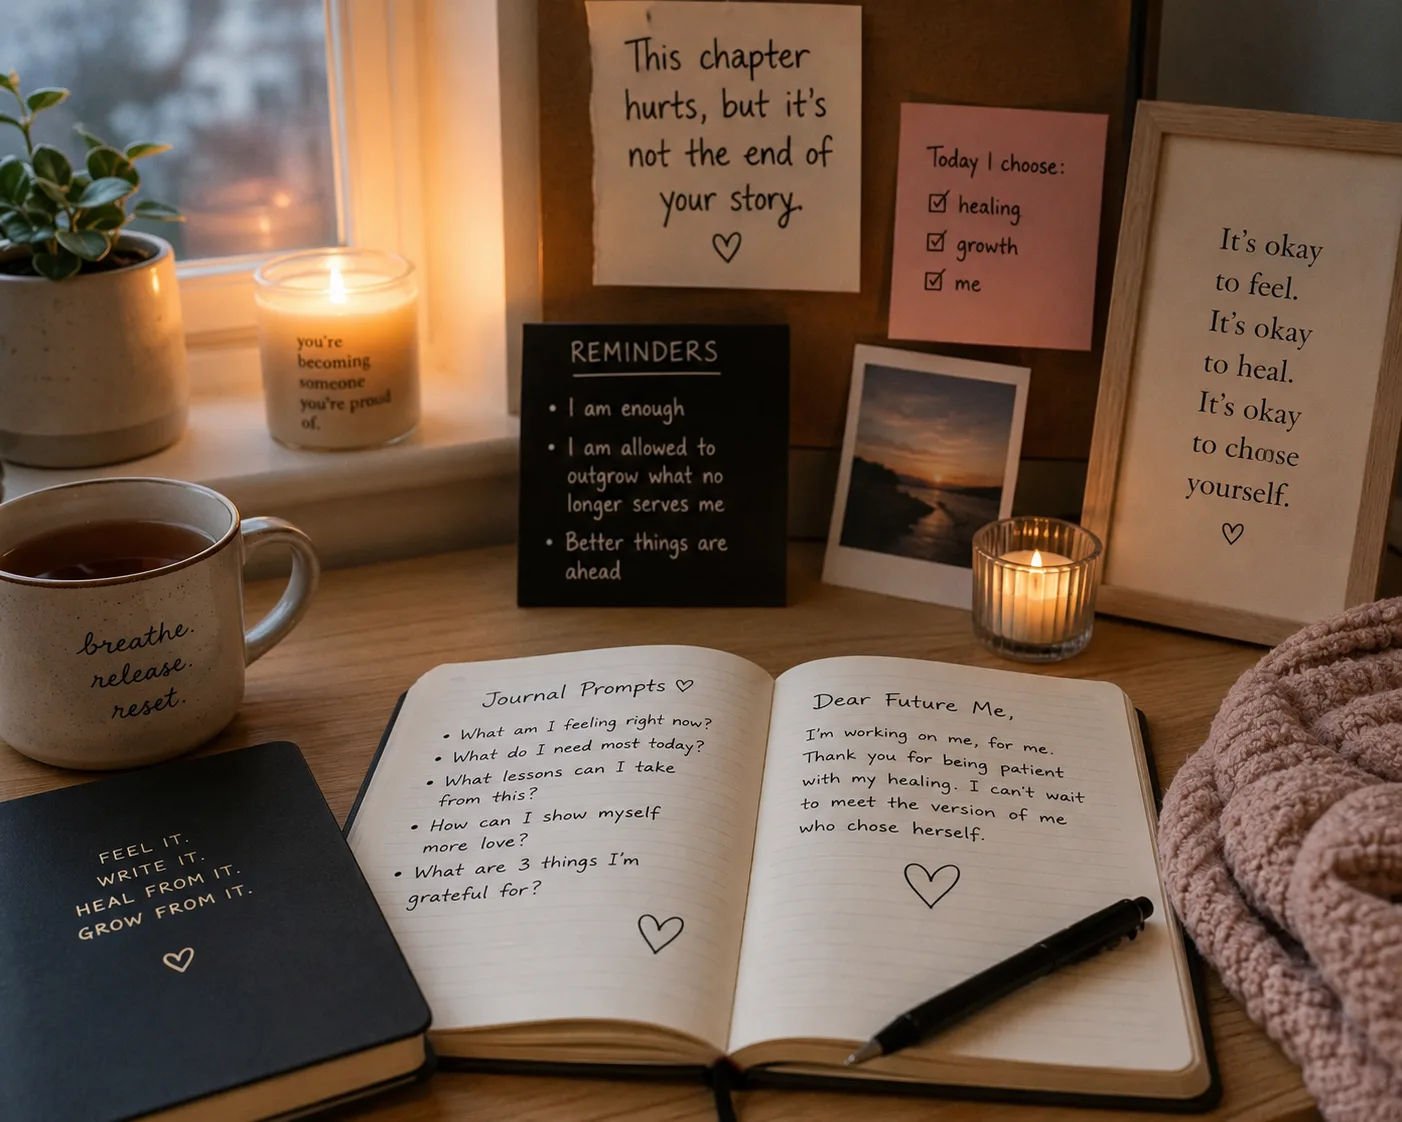 This chapter
hurts, but it's
not the end of
your story.
Today I choose:
healing
growth
me
It's okay
to feel.
It's okay
to heal.
It's okay
to choose
yourself.
you're
becoming
someone
you're proud
of.
REMINDERS
• I am enough
• I am allowed to
outgrow what no
longer serves me
• Better things are
ahead
breathe.
release.
reset.
FEEL IT.
WRITE IT.
HEAL FROM IT.
GROW FROM IT.
Journal Prompts
• What am I feeling right now?
• What do I need most today?
• What lessons can I take
from this?
• How can I show myself
more love?
• What are 3 things I'm
grateful for?
Dear Future Me,
I'm working on me, for me.
Thank you for being patient
with my healing. I can't wait
to meet the version of me
who chose herself.